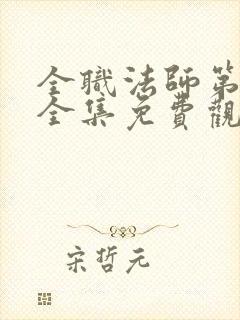 全職法師第
全集免費觀
宋哲元